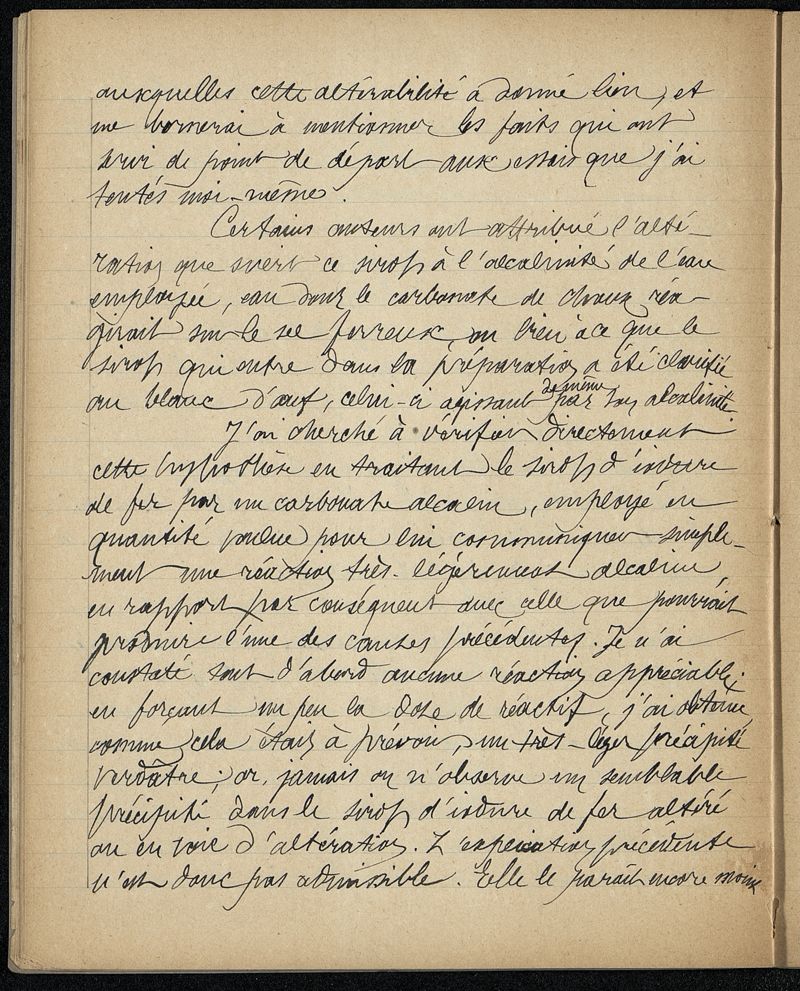 auxquelles cette altérabilité a donné lieu, et
me bornerai à mentionner les faits qui ont
servi de point de départ aux essais que j'ai
tentés moi-même.
Certains auteurs ont attribué l'alté-
ration que subit ce sirop à l'alcalinité de l'eau
employée, eau dont le carbonate de chaux réa-
girait sur le sel ferreux, ou bien à ce que le
sirop qui entre dans la préparation a été clarifié
au blanc d'œuf, celui-ci agissant de même par son alcalinité.
J'ai cherché à vérifier directement
cette hypothèse en traitant le sirop d'iodure
de fer par un carbonate alcalin, employé en
quantité voulue pour lui communiquer simple-
ment une réaction très-légèrement alcaline,
en rapport par conséquent avec celle que pourrait
produire l'une des causes précédentes. Je n'ai
constaté tout d'abord aucune réaction appréciable;
en forçant un peu la dose de réactif, j'ai obtenu,
comme cela était à prévoir, un très-léger précipité
verdâtre; or, jamais on n'observe un semblable
précipité dans le sirop d'iodure de fer altéré
ou en voie d'altération. L'explication précédente
n'est donc pas admissible. Elle le paraît encore moins